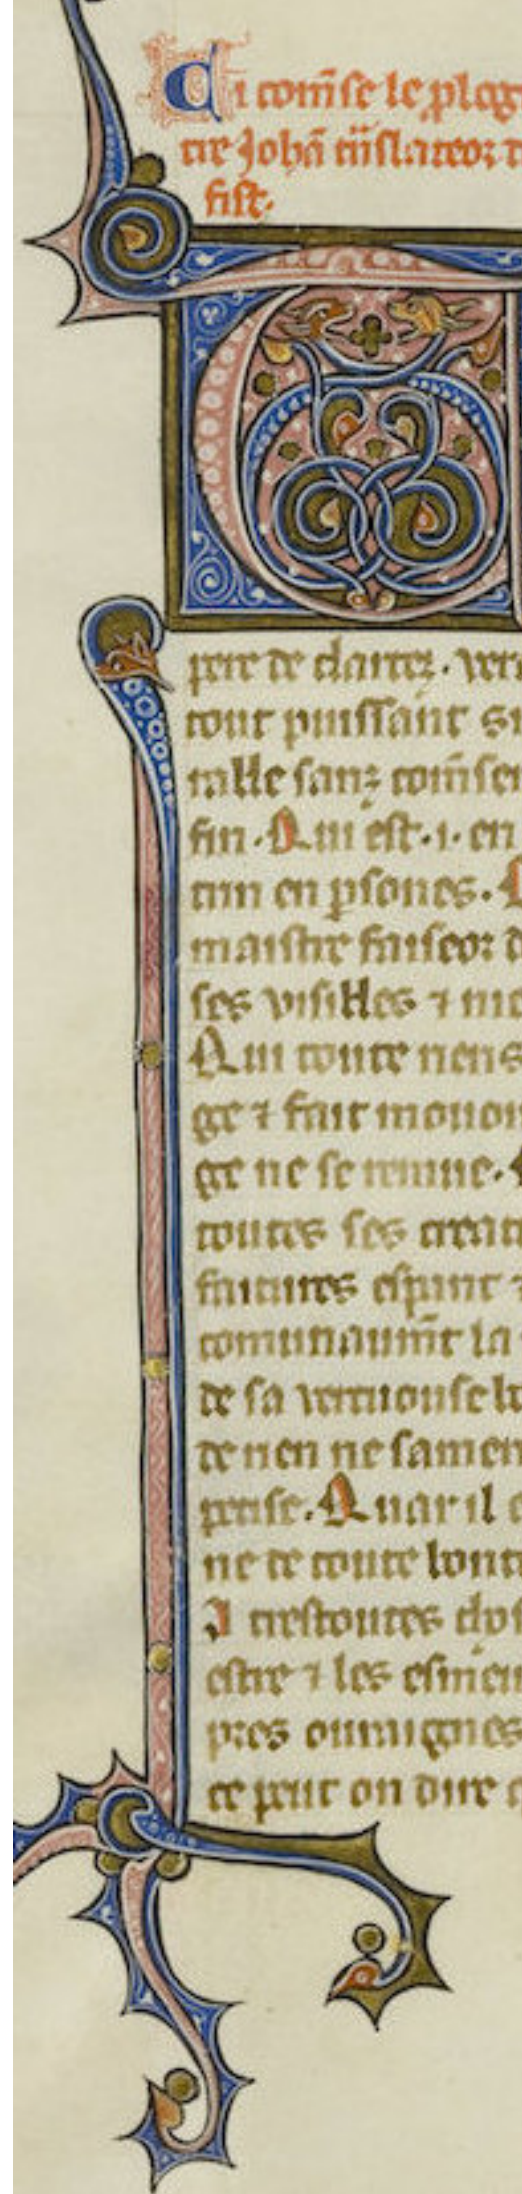 Ci com̄se le plog
tre Joħa t̄islateoꝛ
fist.
pere de clartez. ver
tout puissant
nable sanz com̄sen
fin. Qui est .i. en
trin en ꝑsones.
maistre faiseoꝛ
ses visibles ⁊
Qui toute riens
ge ⁊ fait mouoir
ge ne se remue.
toutes ses creat
faitures espant
comunaum̄t la
de sa vertuouse bo
de rien ne samen
prise. Quar il
ne de toute bonte
J trestoutes chos
estre ⁊ les esmeu
pres ouuraignes
ce peut on dire